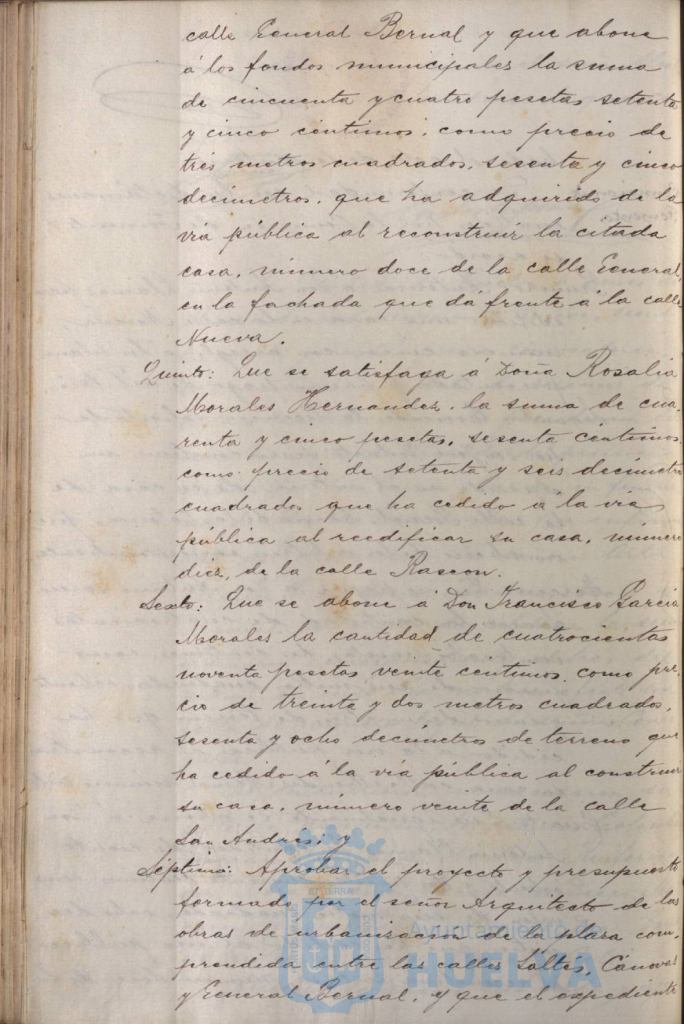 calle General Bernal y que abone
á los fondos municipales la suma
de cincuenta y cuatro pesetas setenta
y cinco centimos, como precio de
tres metros cuadrados, sesenta y cinco
decimetros, que ha adquirido de la
via pública al reconstruir la citada
casa, número doce de la calle General,
en la fachada que dá frente á la calle
Nueva.
Quinto: Que se satisfaga á Doña Rosalia
Morales Hernandez, la suma de cua-
renta y cinco pesetas, sesenta centimos,
como precio de setenta y seis decimetros
cuadrados que ha cedido á la via
pública al reedificar su casa, número
diez, de la calle Rascon.
Sexto: Que se abone á Don Francisco Garcia
Morales la cantidad de cuatrocientas
noventa pesetas veinte centimos, como pre-
cio de treinta y dos metros cuadrados,
sesenta y ocho decimetros de terreno que
ha cedido á la via pública al construir
su casa, número veinte de la calle
San Andres; y
Séptimo: Aprobar el proyecto y presupuesto
formado por el señor Arquitecto de las
obras de urbanizacion de la plaza com-
prendida entre las calles Saltés, Cánovas
y General Bernal, y que el expediente
Ayuntamiento de
HUELVA